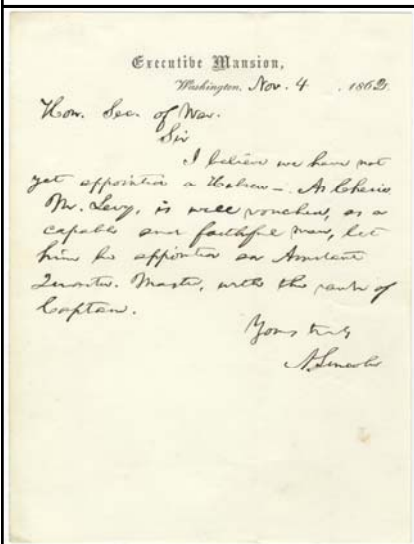 Executive Mansion,
Washington, Nov. 4, 1862.
Hon. Sec. of War.
Sir
I believe we have not
yet appointed a Hebrew — As Cherie
M. Levy, is well vouched, as a
capable and faithful man, let
him be appointed an Assistant
Quarter-Master, with the rank of
Captain.
Yours truly
A. Lincoln